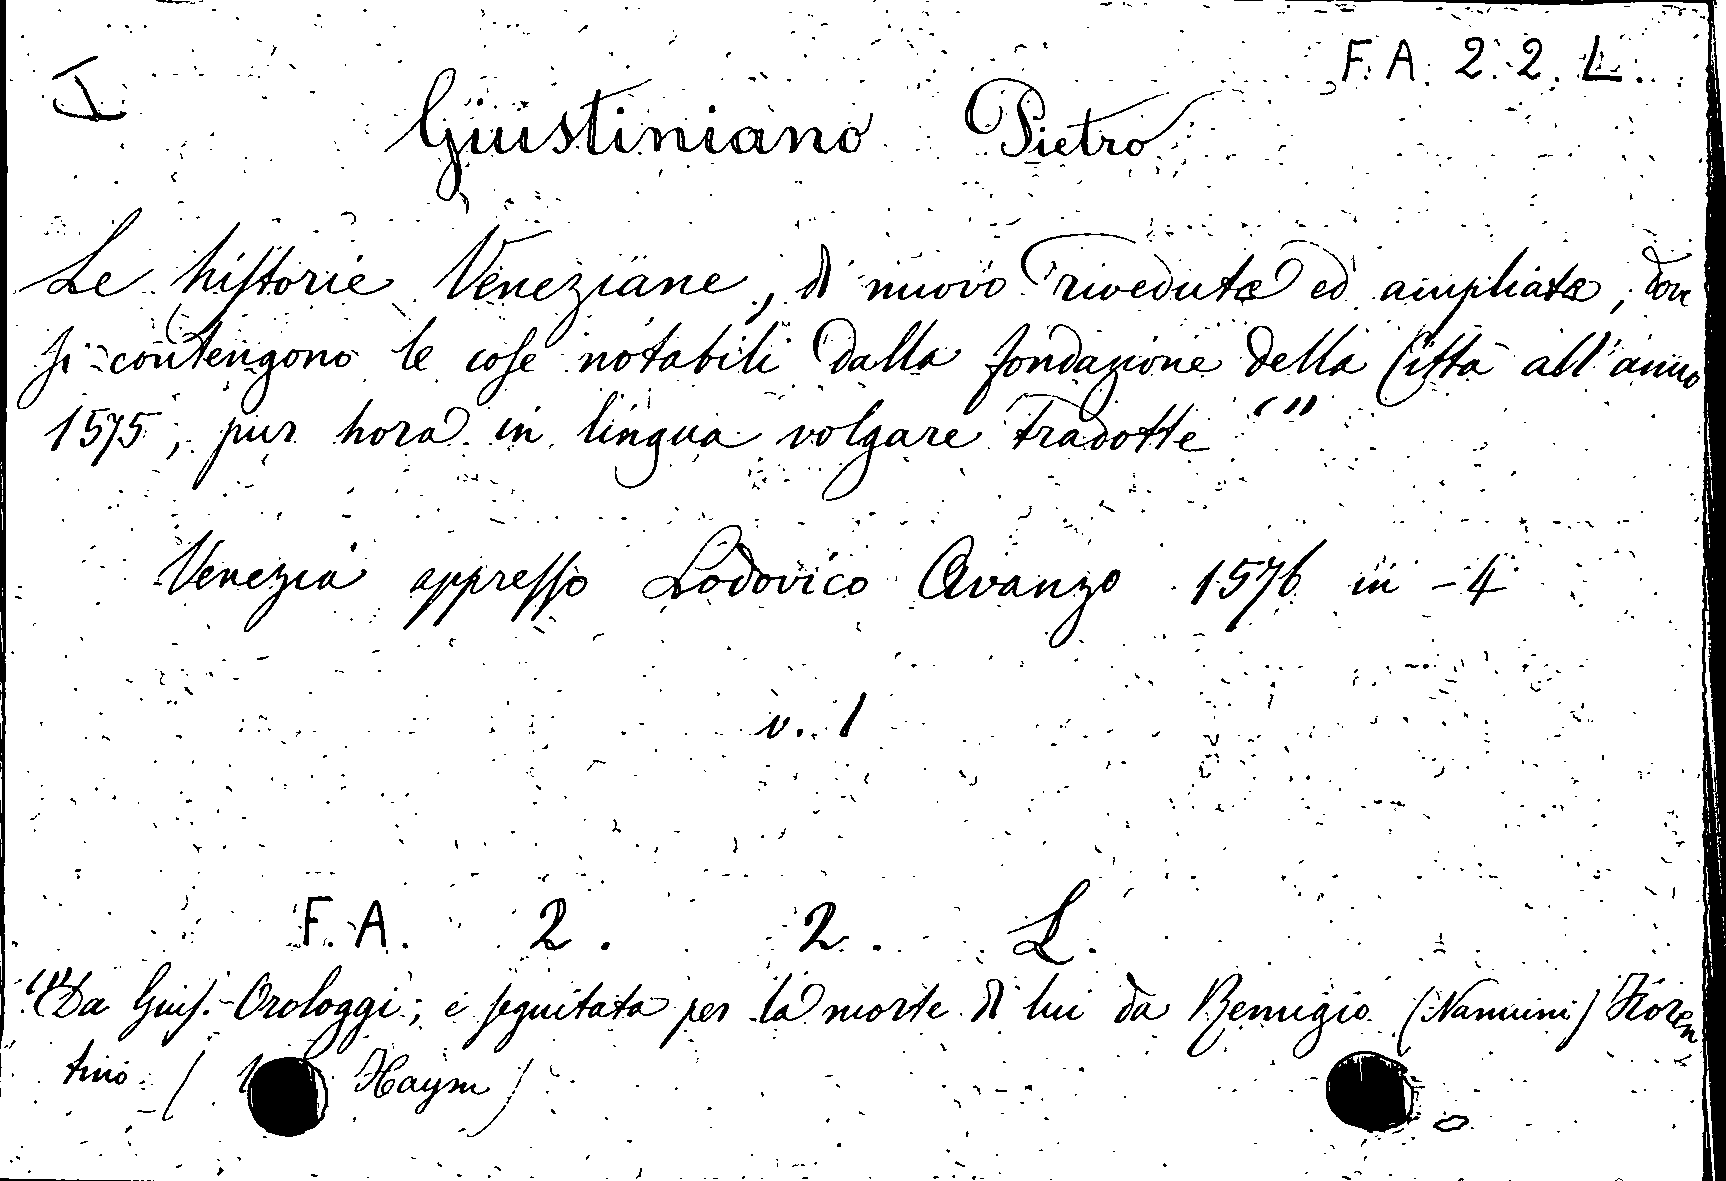 I
F. A. 2. 2. L.
Giustiniano Pietro
Le historie Veneziane, di nuovo rivedute ed ampliate, dove
si contengono le cose notabili dalla fondazione della Città all'anno
1575, pur hora in lingua volgare tradotte (1)
Venezia appresso Lodovico Avanzo 1576 in-4
v. 1
F. A. 2. 2. L.
(1) Da Gius. Orologgi; e seguitata per la morte di lui da Remigio (Nannini) Fioren
tino (Haym)